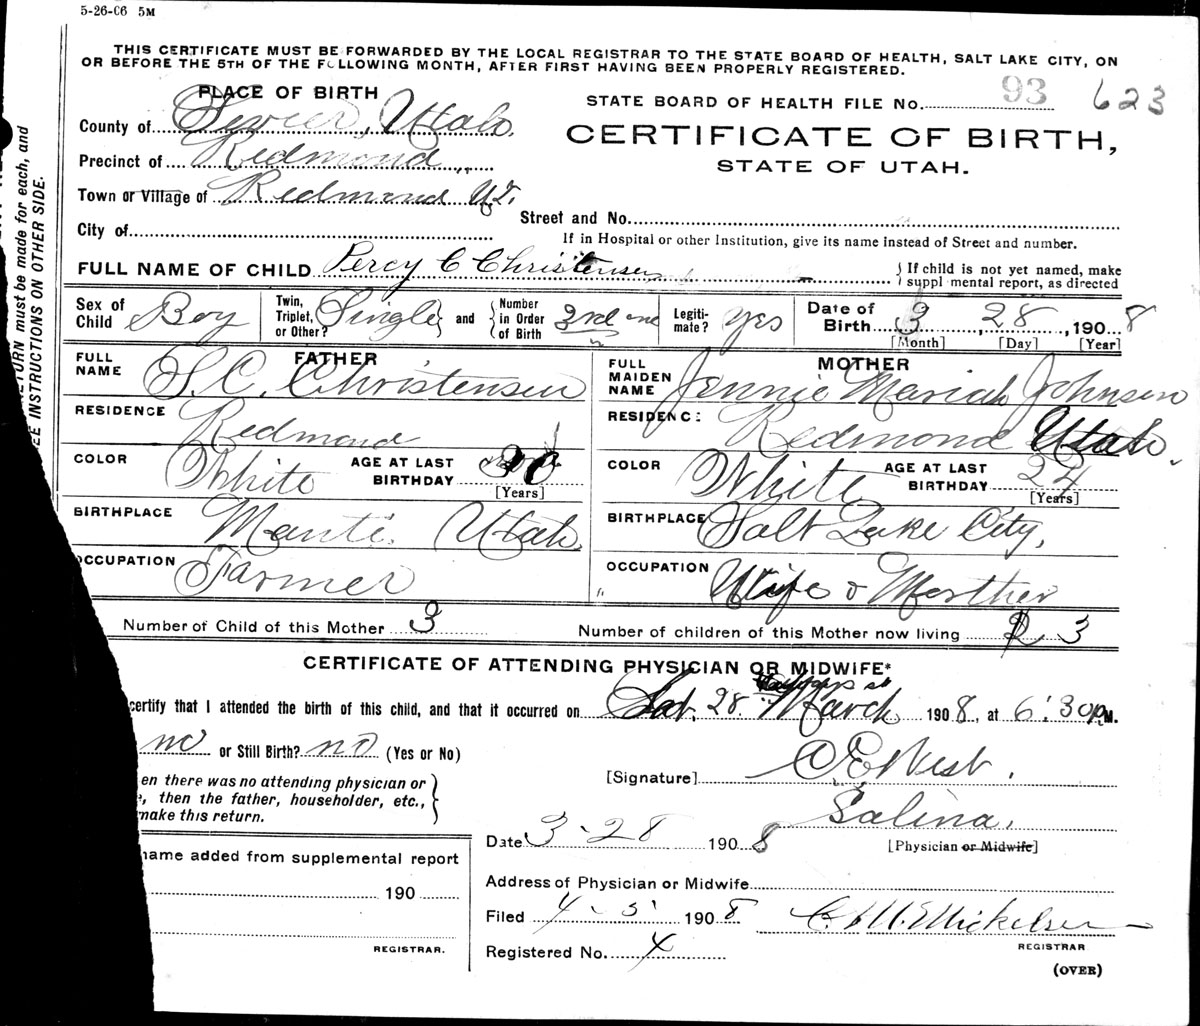 5-26-06 5M
THIS CERTIFICATE MUST BE FORWARDED BY THE LOCAL REGISTRAR TO THE STATE BOARD OF HEALTH, SALT LAKE CITY, ON
OR BEFORE THE 5TH OF THE FOLLOWING MONTH, AFTER FIRST HAVING BEEN PROPERLY REGISTERED.
RETURN must be made for each, and
EE INSTRUCTIONS ON OTHER SIDE.
PLACE OF BIRTH
County of Sevier, Utah.
Precinct of Redmond
Town or Village of Redmond UT.
City of
STATE BOARD OF HEALTH FILE No. 93 623
CERTIFICATE OF BIRTH,
STATE OF UTAH.
Street and No.
If in Hospital or other Institution, give its name instead of Street and number.
FULL NAME OF CHILD Percy C Christensen { If child is not yet named, make
suppl mental report, as directed
Sex of Child Boy Twin, Triplet, or Other? Single and Number in Order of Birth 3rd Legiti-mate? Yes Date of Birth 3, 28, 1908
[Month] [Day] [Year]
FATHER
FULL NAME S.C. Christensen
RESIDENCE Redmond
COLOR White AGE AT LAST BIRTHDAY 30
[Years]
BIRTHPLACE Manti Utah.
OCCUPATION Farmer
MOTHER
FULL MAIDEN NAME Jennie Mariah Johnson
RESIDENC: Redmond Utah.
COLOR White AGE AT LAST BIRTHDAY
[Years]
BIRTHPLACE Salt Lake City,
OCCUPATION Wife & Morther
Number of Child of this Mother 3 Number of children of this Mother now living 3
CERTIFICATE OF ATTENDING PHYSICIAN OR MIDWIFE*
certify that I attended the birth of this child, and that it occurred on Sat. 28. March 1908, at 6:30 P.M.
no or Still Birth? no (Yes or No)
en there was no attending physician or
, then the father, householder, etc.,
make this return.
[Signature] C E West.
Salina.
[Physician or Midwife]
Date 3-28 1908
name added from supplemental report
190
REGISTRAR.
Address of Physician or Midwife
Filed 4-5 1908 Mickelsen
REGISTRAR
Registered No. 4
(OVER)